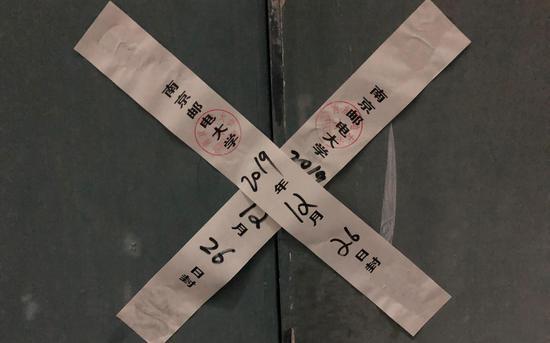 南京邮电大学 2019年12月26日封
南京邮电大学 2019 12月26日封